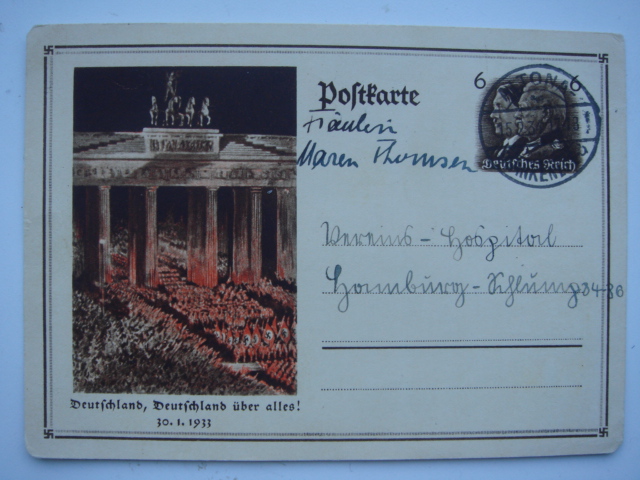 Postkarte
6 6
Deutsches Reich
Fräulein
Maren Thomsen
Vereins-Hospital
Hamburg-Schlump 84-86
Deutschland, Deutschland über alles!
30.1.1933